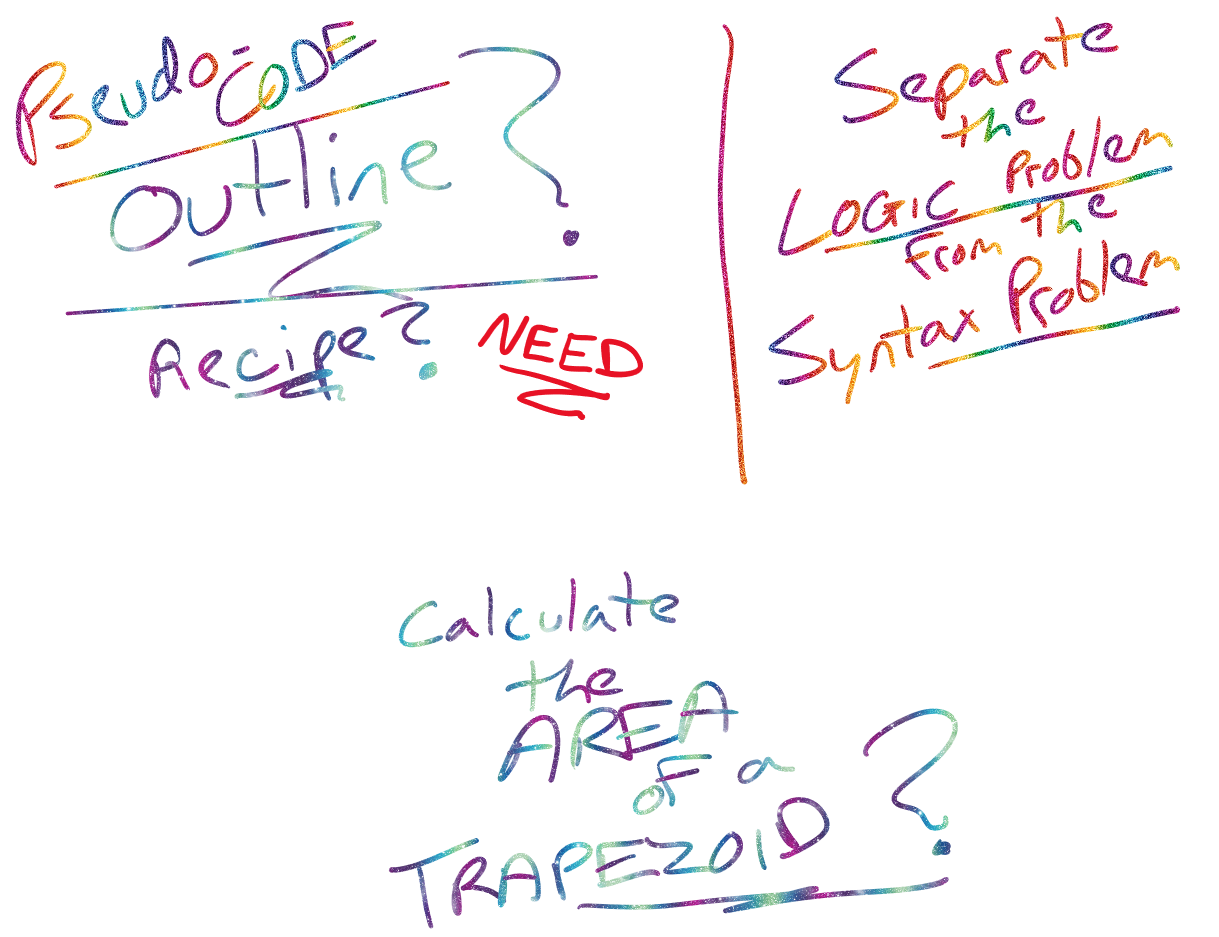 Pseudo-CODE
Outline?
Recipe?
NEED
Separate
the
LOGIC Problem
From the
Syntax Problem
Calculate
the
AREA
oF a
TRAPEZOID?